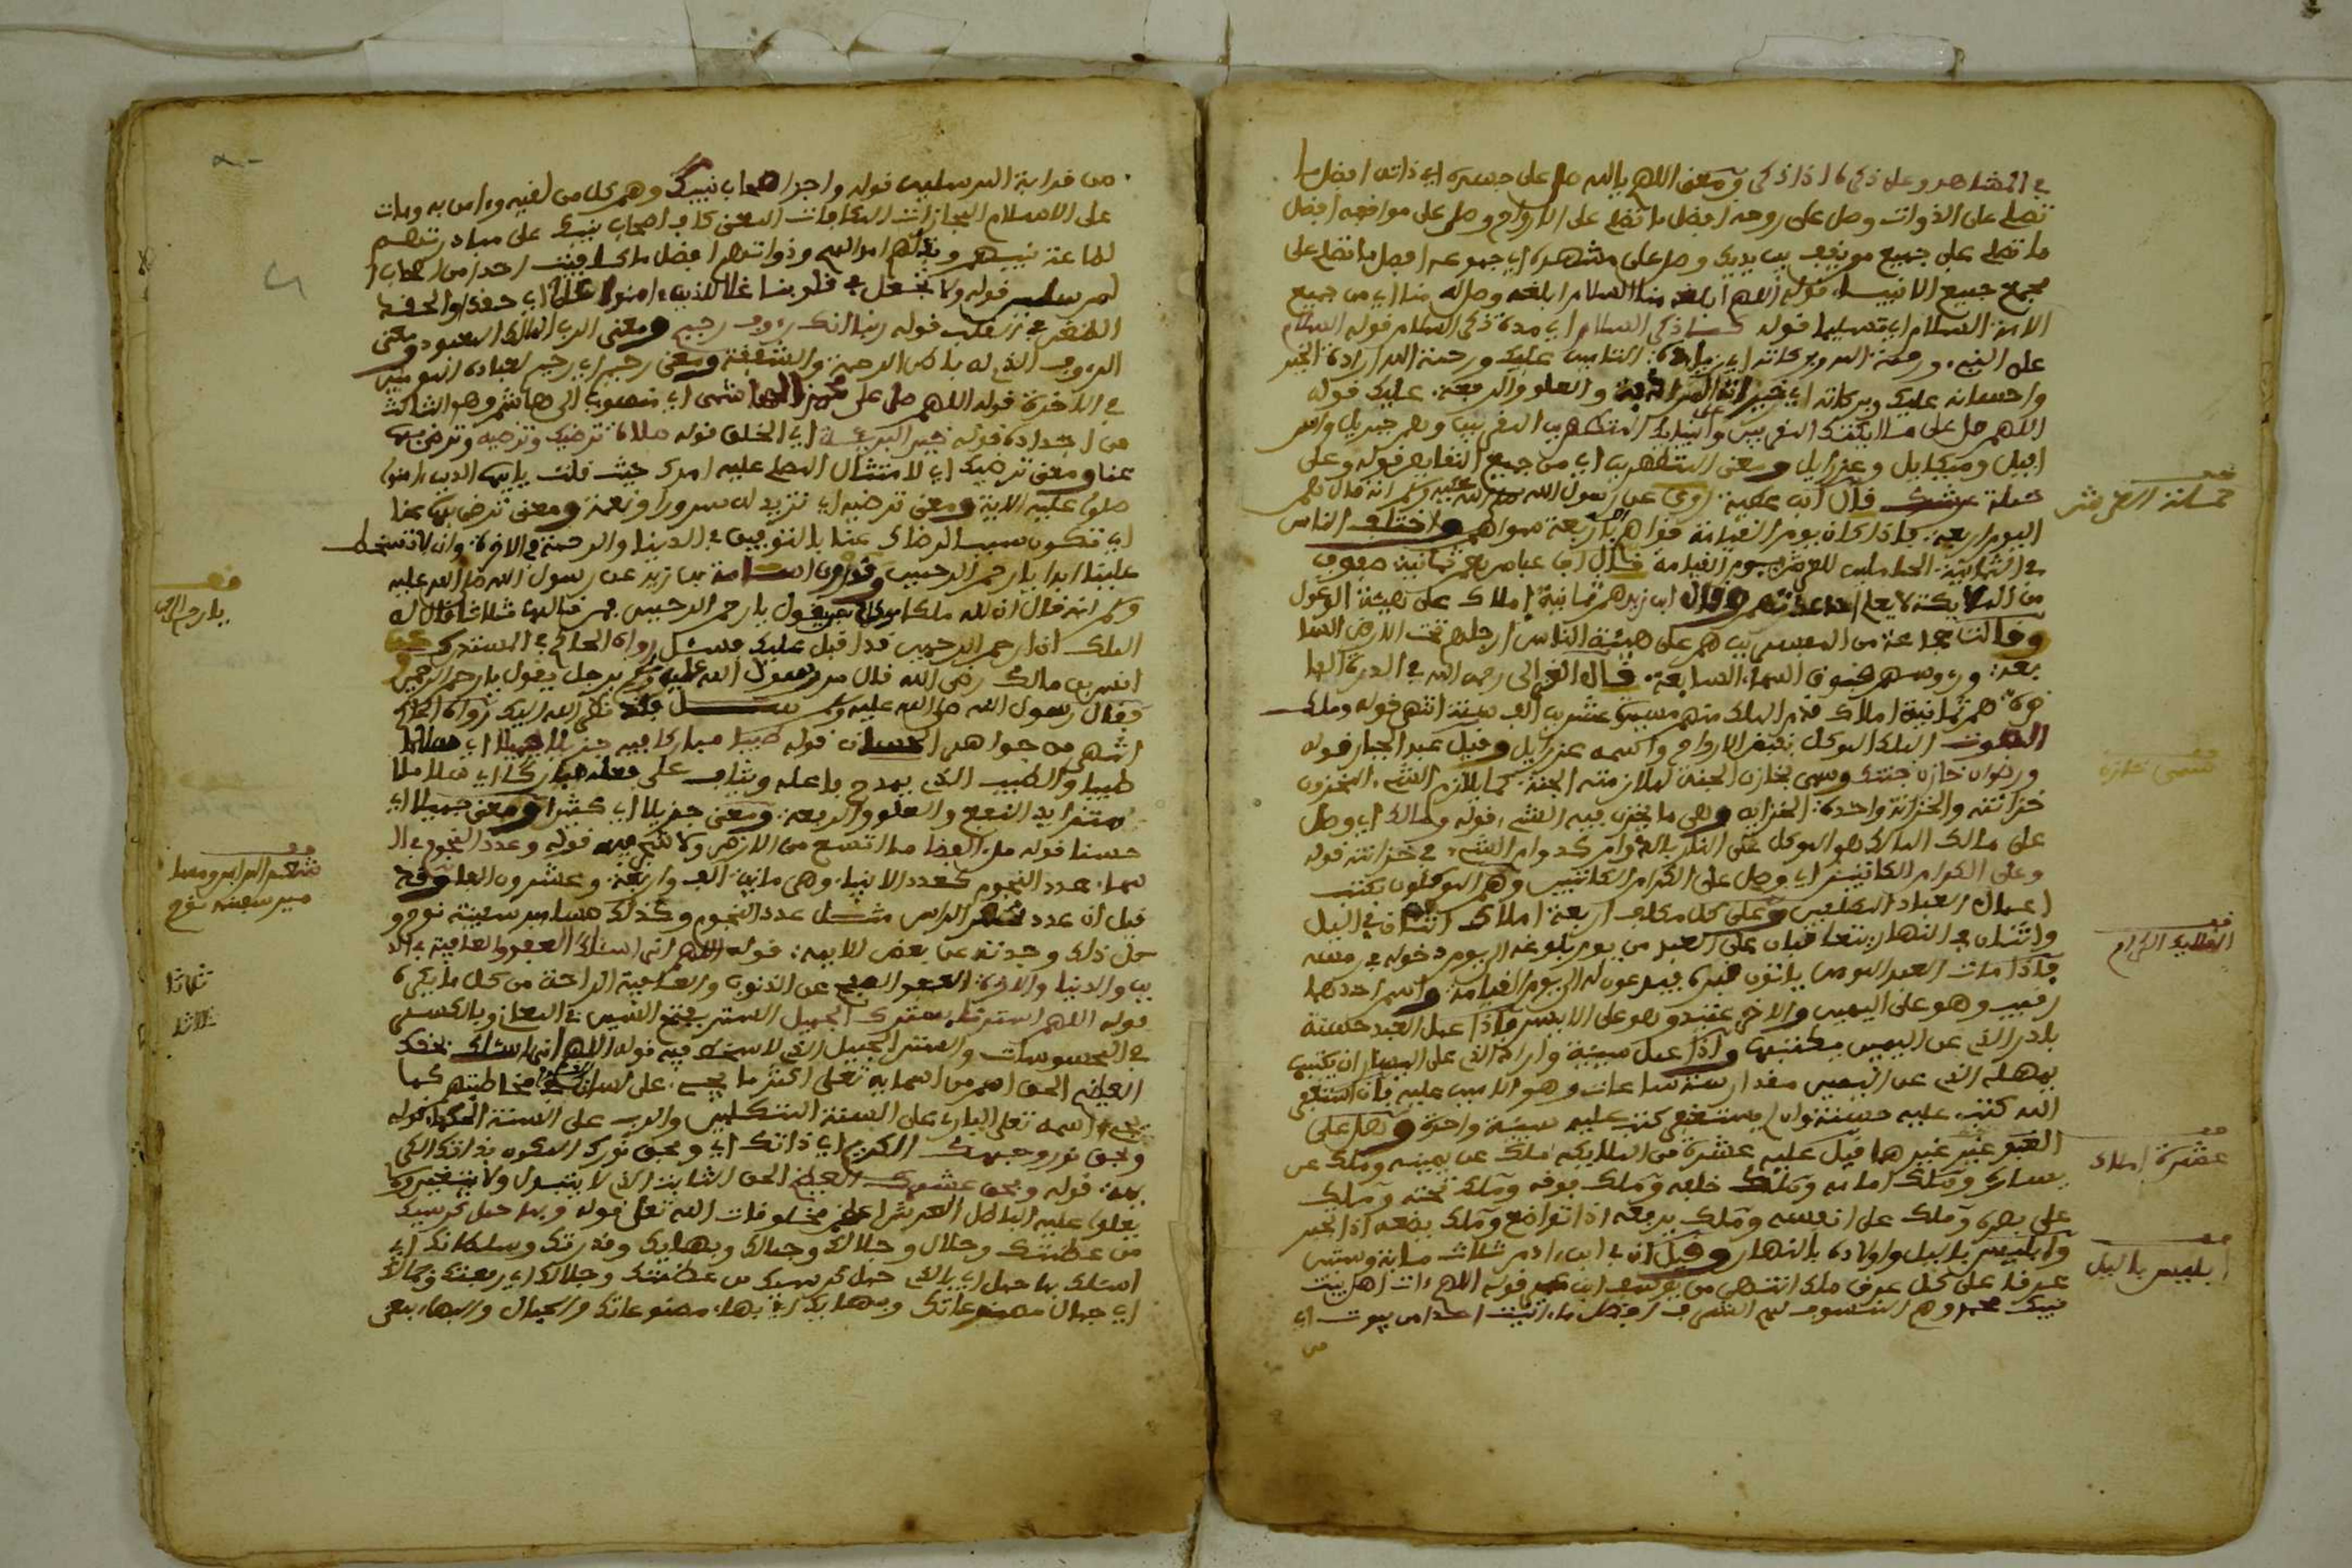 في المشاهد وعلى ذكره اذا ذكر ومعنى اللهم يالله صل على جسده اي ذاته افضل ما
تصلي على الذوات وصل على روحه افضل ما تصلي على الارواح وصل على مواقفه افضل
ما تصلي على جميع مو يقف بين يديك وصل على مشهده اي جموعه افضل ما تصلي على
مجمع جميع الانبياء قوله اللهم ابلغه منا السلام ابلغه وصله منا اي من جميع
الامة السلام اي تسليما قوله كلما ذكر السلام اي مدة ذكر السلام قوله السلام
على النبيء ورحمة الله وبركاته اي عليك ورحمة الله ارادة الخير
واحسانه عليك وبركاته اي والعلو والرفعة عليك قوله
اللهم صل على ملايكتك المقربين وانبيايك المطهرين المقربين وهم جبريل واسر
افيل وميكايل وعزرايل ومعنى المطهرين اي من جميع النقايص قوله وعلى
حملة عرشك قال ابن عطية روي عن رسول الله صلى الله عليه وسلم انه قال هم
اليوم اربعة فاذا كان يوم القيامة قواهم باربعة سواهم واختلف الناس
في الثمانية الحاملين للعرش يوم القيامة فقال ابن عباس هم ثمانية صفوف
من الملايكة لا يعلم احد عدتهم وقال ابن زيد هم ثمانية املاك على هيئة الوعول
وقالت جماعة من المفسرين هم على هيئة الناس ارجلهم تحت الارض السا
بعة ورءوسهم فوق السماء السابعة قال الغزالي رحمه الله في الدرة الفا
خرة هم ثمانية املاك قدم الملك منهم مسيرة عشرين الف سنة انتهى قوله وملك
الموت الملك الموكل بقبض الارواح واسمه عزرايل وقيل عبد الجبار قوله
ورضوان خازن جنتك وسمي بخازن الجنة لملازمته الجنة كما يلازم الشيء المخزون
خزانته والخزانة واحدة الخزاين وهي ما يخزن فيه الشيء قوله ومالك اي وصل
على مالك المالك هو الموكل على النار بالدوام كدوام الشيء في خزانته قوله
وعلى الكرام الكاتبين اي وصل على الكرام الكاتبين وهم الموكلون بكتب
اعمال العباد المكلفين وعلى كل مكلف اربعة املاك اثنان في اليل
واثنان في النهار يتعاقبان على العبد من يوم بلوغه الى يوم دخوله في رمسه
فاذا مات العبد المومن ياتون قبره فيدعون له الى يوم القيامة واسم احدهما
رقيب وهو على اليمين والاخر عتيد وهو على الايسر فاذا عمل العبد حسنة
بادر الذي عن اليمين بكتبها واذا عمل سيئة واراد الذي على اليسار ان يكتبها
يمهله الذي عن اليمين مقدار ستة ساعات وهو الامين عليه فان استغفر
الله كتب عليه حسنة وان لم يستغفر كتب عليه سيئة واحدة وهل على
العبد غير غيرهما قيل عليه عشرة من الملايكة ملك عن يمينه وملك عن
يساره وملك امامه وملك خلفه وملك فوقه وملك تحته وملك
على بصره وملك على انفه وملك يرفعه اذا تواضع وملك يضعه اذا تجبر
وابليس باليل واولاده بالنهار وقيل ان في ابن ادم ثلاث ماية وستين
عرقا على كل عرق ملك انتهى من يوسف ابن عمر قوله اللهم ءات اهل بيت
نبيك محمد وهم المنسوب لهم الشرف افضل ما ءاتيت احدا من بيوت اي
من
حملة العرش
سمي خازن
الملايك الكرام
عشرة املاك
ابليس باليل
من قرابة المرسلين قوله واجز اصحاب نبيك وهم كل من لقيه وءامن به ومات
على الاسلام المجازات المكافات المعنى كاف اصحاب نبيك على مبادرتهم
لطاعة نبيهم وبذلهم اموالهم وذواتهم افضل ما كافيت احدا من اصحاب ا
لمرسلين قوله ولا تجعل في قلوبنا غلا للذين ءامنوا غلا اي حقدا والحقد
الطغن في القلب قوله ربنا انك رءوف رحيم ومعنى الرب المالك المعبود ومعنى
الرءوف الذي له باطن الرحمة والشفقة ومعنى رحيم اي رحيم لعباده المومنين
في الاخرة قوله اللهم صل على محمد الهاشمي اي منسوب الى هاشم وهو الثالث
من اجداده قوله خير البرية اي الخلق قوله صلاة ترضيك وترضيه وترضى بها
عنا ومعنى ترضيك اي لامتثال المصلي عليه امرك حيث قلت يايها الذين ءامنوا
صلوا عليه الاية ومعنى ترضيه اي تزيد له سرورا ونعمة ومعنى ترضى بها عنا
اي تكون سبب الرضاك عنا بالتوفيق في الدنيا والرحمة في الاخرة وان لا تسخط
علينا ابدا يارحم الرحمين وعن ابي امامة عن رسول الله صلى الله عليه
وسلم انه قال ان لله ملكا موكلا بمن يقول يا رحم الرحمين فمن قالها ثلاثا قال له
الملك ان ارحم الرحمين قد اقبل عليك فسئل رواه الحاكم في المستدرك عن
انس بن مالك رضي الله قال مر رسول الله صلى الله عليه وسلم برجل يقول يارحم الرحمين
فقال رسول الله صلى الله عليه وسلم سل فقد نظر الله اليك رواه الحاكم
انتهى من جواهر الحسان قوله طيبا مباركا فيه جزيلا جميلا اي
طيبا والطيب الذي يمدح فاعله ويثاب على فعله مباركا اي سلاما
متزايد النفع والعلو والرفعة ومعنى جزيلا اي كثيرا ومعنى جميلا اي
حسنا قوله ملء الفضا ما اتسع من الارض ولا شيء فيه قوله وعدد النجوم في ال
سماء عدد النجوم كعدد الانبياء وهي ماية الف واربعة وعشرون الفا وقد
قيل ان عدد شعر الراس مثل عدد النجوم وكذلك مسامير سفينة نوح و
كل ذلك وجدته عن بعض الايمة قوله اللهم اني اسئلك العفو والعافية في الد
ين والدنيا والاخرة العفو الصفح عن الذنوب والعافية الراحة من كل ما يكره
قوله اللهم استرنا بسترك الجميل الستر بفتح السين في المعاني وبالكسر
في المحسوسات والستر الجميل الذي لا سخط فيه قوله اللهم اني اسئلك بحقك
العظيم الحق اسم من اسمايه تعلى اكثر ما يجري على لسان مخاطبتهم كما
يجري اسمه تعلى الباري على السنة المتكلمين والرب على السنة قوله
وبحق نور وجهك الكريم اي ذاتك اي وبحق نورك المكرم بذاتك
قوله وبحق عرشك العظيم الحق الثابت الذي لا يتبدل ولا يتغير
يطلق عليه الباطل العرش اعظم مخلوقات الله تعلى قوله وبما حمل كرسيك
من عظمتك وجلال وجلالك وجمالك وبهايك وقدرتك وسلطانك اي
اسئلك بما حمل اي بالذي حمل كرسيك من عظمتك وجلالك اي رفعتك وجمالك
اي جمال مصنوعاتك وبهايك اي بهاء مصنوعاتك والجمال والبهاء بمعنى
يارحم الرحمين
شعر الراس ومسا
مير سفينة نوح
ثلاثا